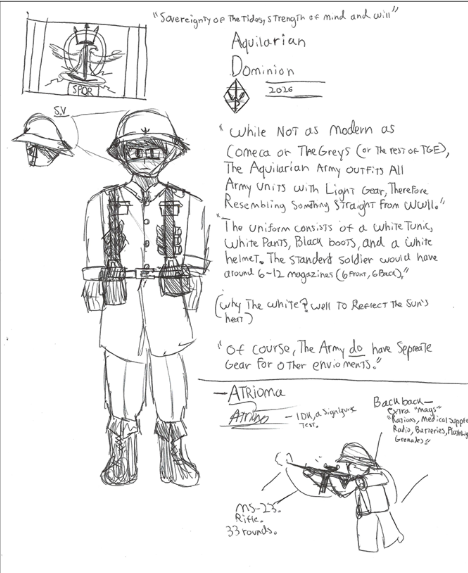 "Sovereignty of The Tides, strength of mind and will"
Aquilarian
Dominion
2026
SPQR
S.V
"While NOT as modern as
Comeca or The Greys (or the rest of TGE),
The Aquilarian Army outfits All
Army Units with Light Gear, Therefore
Resembling Something Straight from WWII."
"The uniform consists of a white Tunic,
White Pants, Black boots, and a white
helmet. The standent soldier would have
around 6-12 magazines (6 Front, 6 Back),"
(Why The white? well To Reflect the Sun's
heat)
"Of course, The Army do have Seprete
Gear For other envioments."
—ATRIOMA
— IDK, a signigure
Test.
Backback—
Extra "mags"
Rasions, Medical supple
Radio, Batteries,
Grenades"
MS-23.
Rifle.
33 rounds.